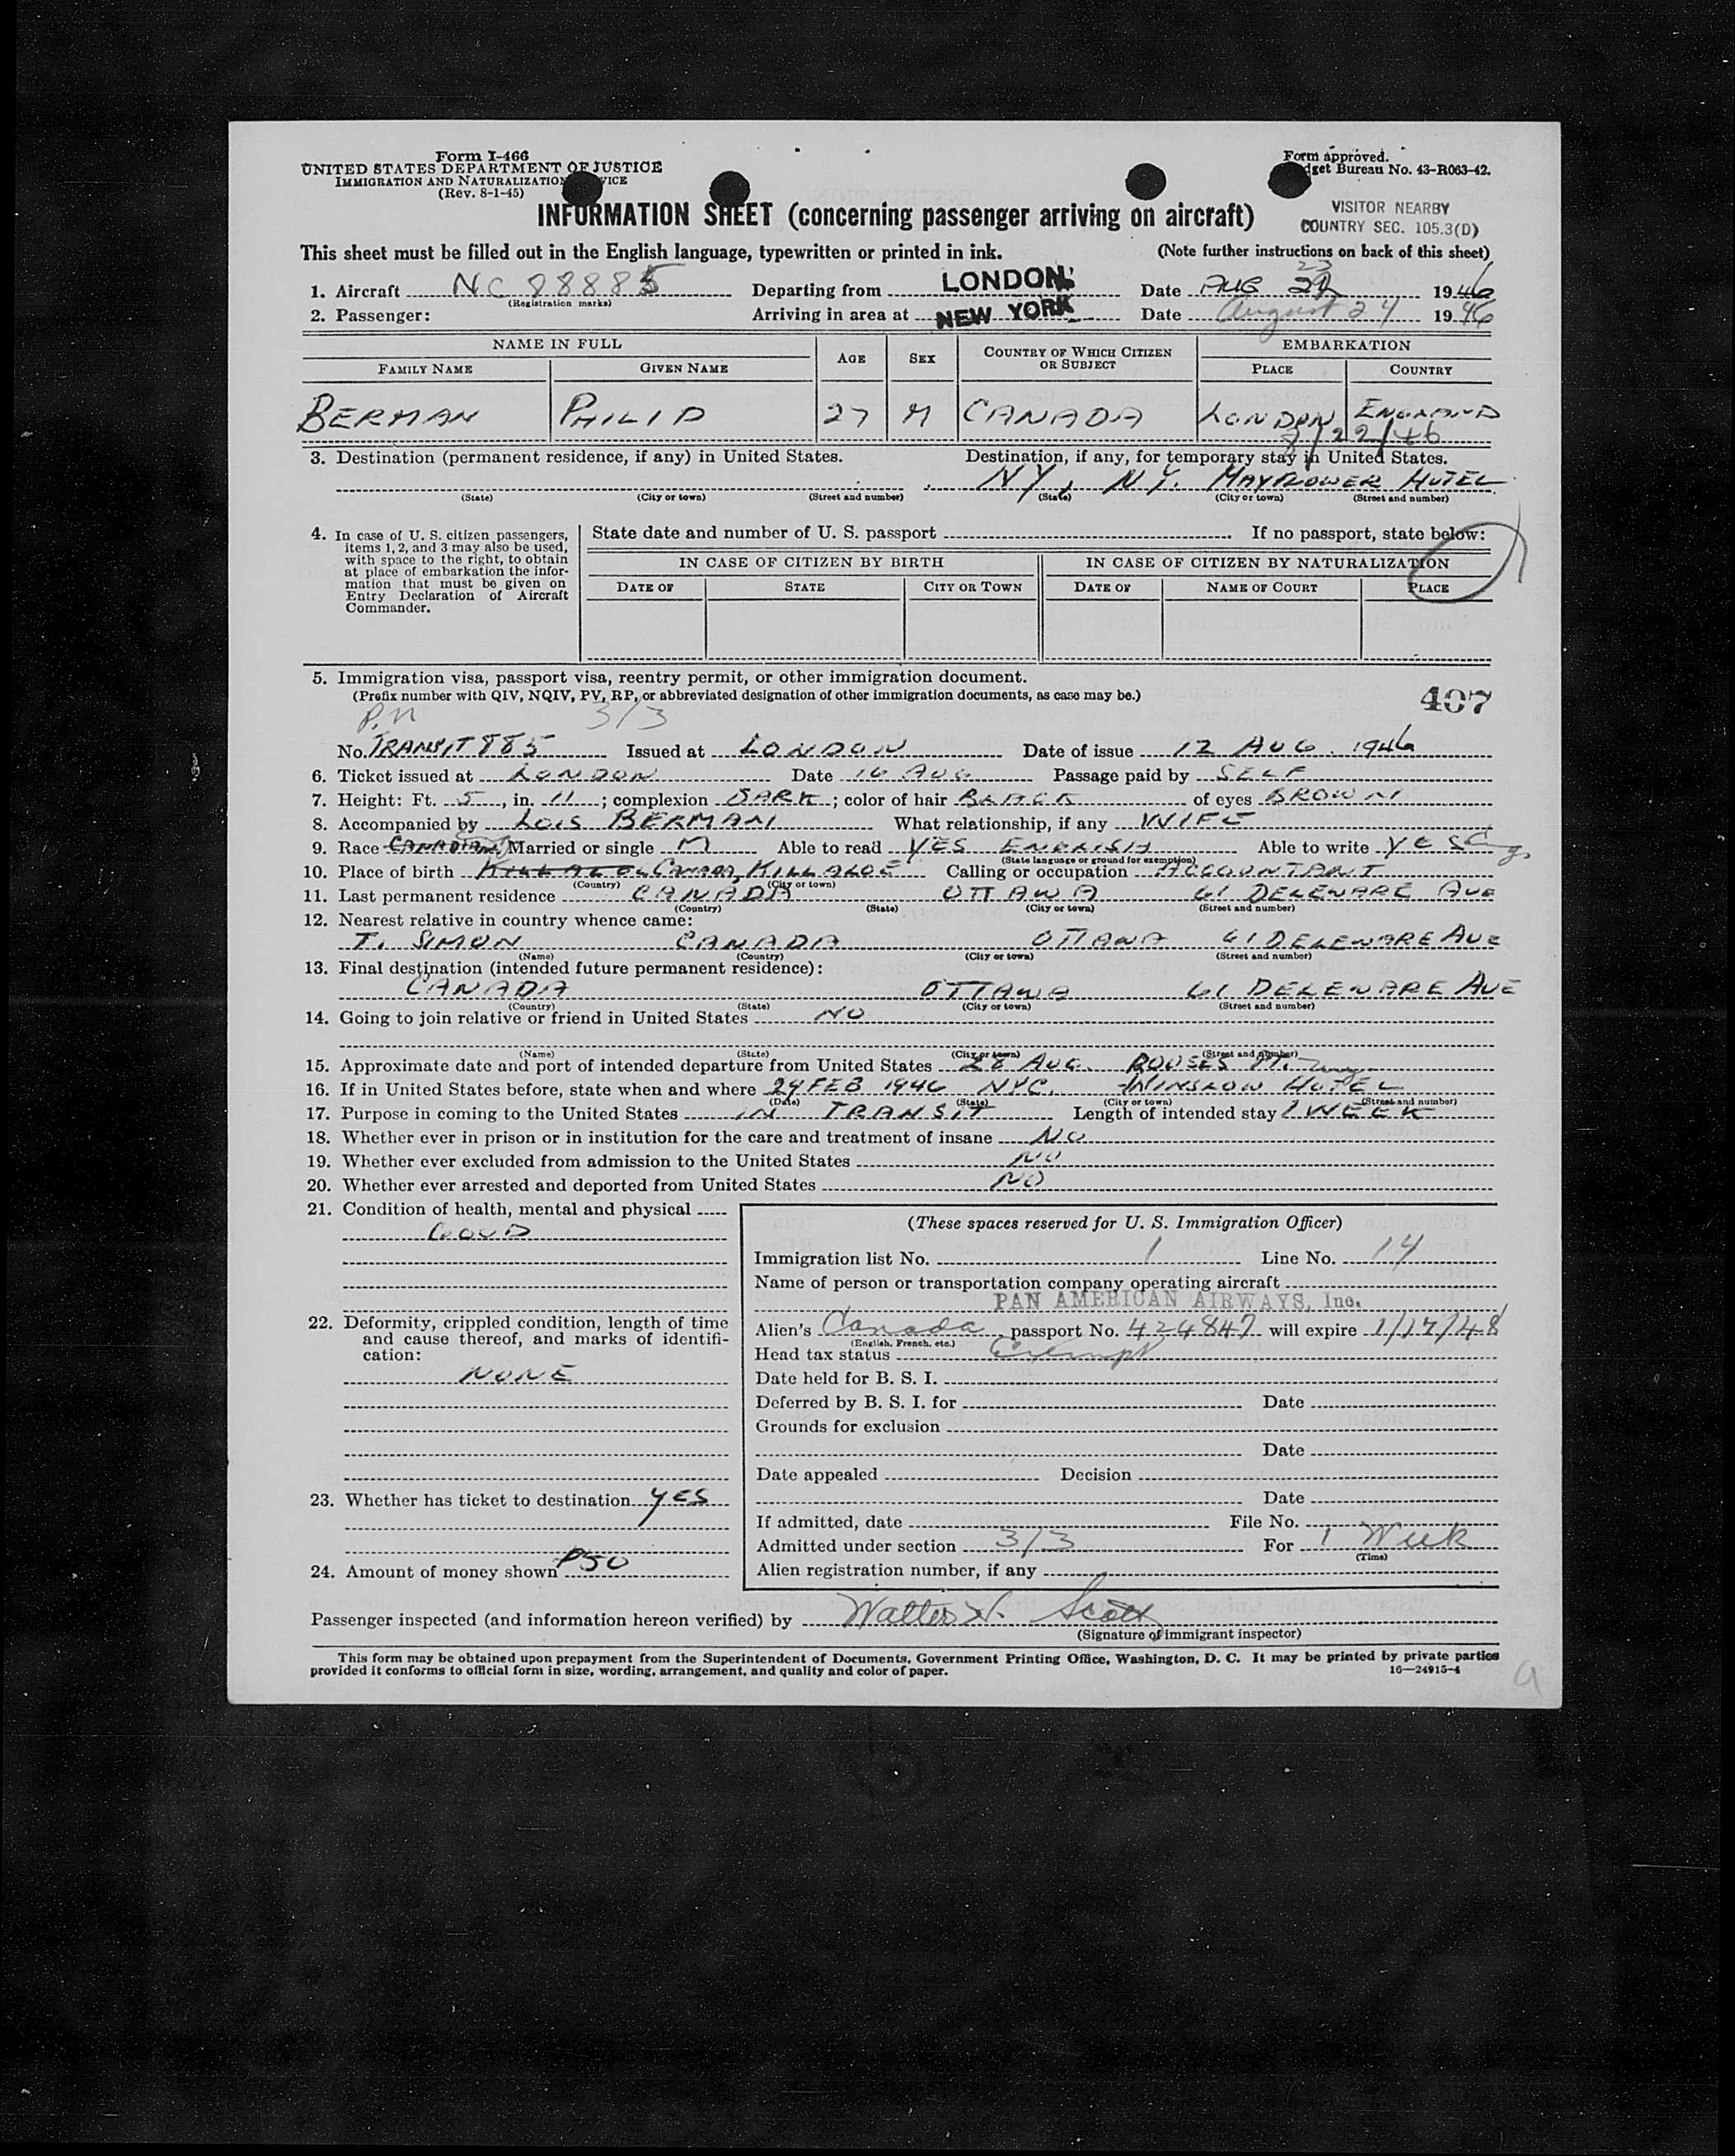 Form I-466
UNITED STATES DEPARTMENT OF JUSTICE
IMMIGRATION AND NATURALIZATION
(Rev. 8-1-45)
Form approved.
Bureau No. 43-R063-42.
INFORMATION SHEET (concerning passenger arriving on aircraft)
VISITOR NEARBY
COUNTRY SEC. 105.3(D)
This sheet must be filled out in the English language, typewritten or printed in ink. (Note further instructions on back of this sheet)
1. Aircraft NC 88885 Departing from LONDON Date AUG 23 1946
(Registration marks)
2. Passenger: Arriving in area at NEW YORK Date August 24 1946
NAME IN FULL AGE SEX COUNTRY OF WHICH CITIZEN OR SUBJECT EMBARKATION
FAMILY NAME GIVEN NAME PLACE COUNTRY
BERMAN PHILIP 27 M CANADA LONDON ENGLAND
8/22/46
3. Destination (permanent residence, if any) in United States. Destination, if any, for temporary stay in United States.
NY, N.Y. MAYFLOWER HOTEL
(State) (City or town) (Street and number) (State) (City or town) (Street and number)
4. In case of U. S. citizen passengers, items 1, 2, and 3 may also be used, with space to the right, to obtain at place of embarkation the information that must be given on Entry Declaration of Aircraft Commander.
State date and number of U. S. passport If no passport, state below:
IN CASE OF CITIZEN BY BIRTH IN CASE OF CITIZEN BY NATURALIZATION
DATE OF STATE CITY OR TOWN DATE OF NAME OF COURT PLACE
5. Immigration visa, passport visa, reentry permit, or other immigration document.
(Prefix number with QIV, NQIV, PV, RP, or abbreviated designation of other immigration documents, as case may be.)
407
3/3
No. TRANSIT 885 Issued at LONDON Date of issue 12 AUG. 1946
6. Ticket issued at LONDON Date 16 AUG Passage paid by SELF
7. Height: Ft. 5, in. 11; complexion DARK; color of hair BLACK of eyes BROWN
8. Accompanied by LOIS BERMAN What relationship, if any WIFE
9. Race CANADIAN Married or single M Able to read YES ENGLISH Able to write YES
(State language or ground for exemption)
10. Place of birth CANADA, KILLALOE Calling or occupation ACCOUNTANT
(Country) (City or town)
11. Last permanent residence CANADA OTTAWA 61 DELEWARE AVE
(Country) (State) (City or town) (Street and number)
12. Nearest relative in country whence came:
T. SIMON CANADA OTTAWA 61 DELEWARE AVE
(Name) (Country) (City or town) (Street and number)
13. Final destination (intended future permanent residence):
CANADA OTTAWA 61 DELEWARE AVE
(Country) (State) (City or town) (Street and number)
14. Going to join relative or friend in United States NO
(Name) (State) (City or town) (Street and number)
15. Approximate date and port of intended departure from United States 28 AUG. ROUSES
16. If in United States before, state when and where 24 FEB 1946 NYC. WINSLOW HOTEL
(Date) (State) (City or town) (Street and number)
17. Purpose in coming to the United States IN TRANSIT Length of intended stay 1 WEEK
18. Whether ever in prison or in institution for the care and treatment of insane NO
19. Whether ever excluded from admission to the United States NO
20. Whether ever arrested and deported from United States NO
21. Condition of health, mental and physical
GOOD
22. Deformity, crippled condition, length of time and cause thereof, and marks of identification:
NONE
23. Whether has ticket to destination YES
24. Amount of money shown P50
(These spaces reserved for U. S. Immigration Officer)
Immigration list No. 1 Line No. 14
Name of person or transportation company operating aircraft
PAN AMERICAN AIRWAYS, Inc.
Alien's Canada passport No. 424847 will expire 1/17/48
(English, French, etc.)
Head tax status Exempt
Date held for B. S. I.
Deferred by B. S. I. for Date
Grounds for exclusion
Date
Date appealed Decision
Date
If admitted, date File No.
Admitted under section 3/3 For 1 Week
(Time)
Alien registration number, if any
Passenger inspected (and information hereon verified) by Walter W. Scott
(Signature of immigrant inspector)
This form may be obtained upon prepayment from the Superintendent of Documents, Government Printing Office, Washington, D. C. It may be printed by private parties
provided it conforms to official form in size, wording, arrangement, and quality and color of paper. 16—24915-4